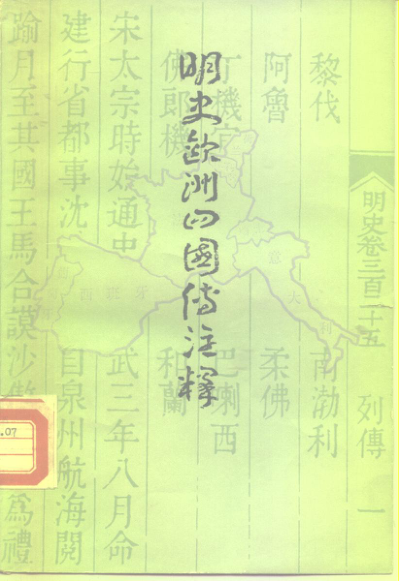 明史歐洲四國傳注釋
明史卷三百二十五 列傳 一
黎伐 南渤利
阿魯 柔佛
丁機宜 巴喇西
佛郎機 和蘭
宋太宗時始通中 武三年八月命
建行省都事沈 自泉州航海閱
踰月至其國王馬合謨沙 為禮
西班牙
意大利
.07